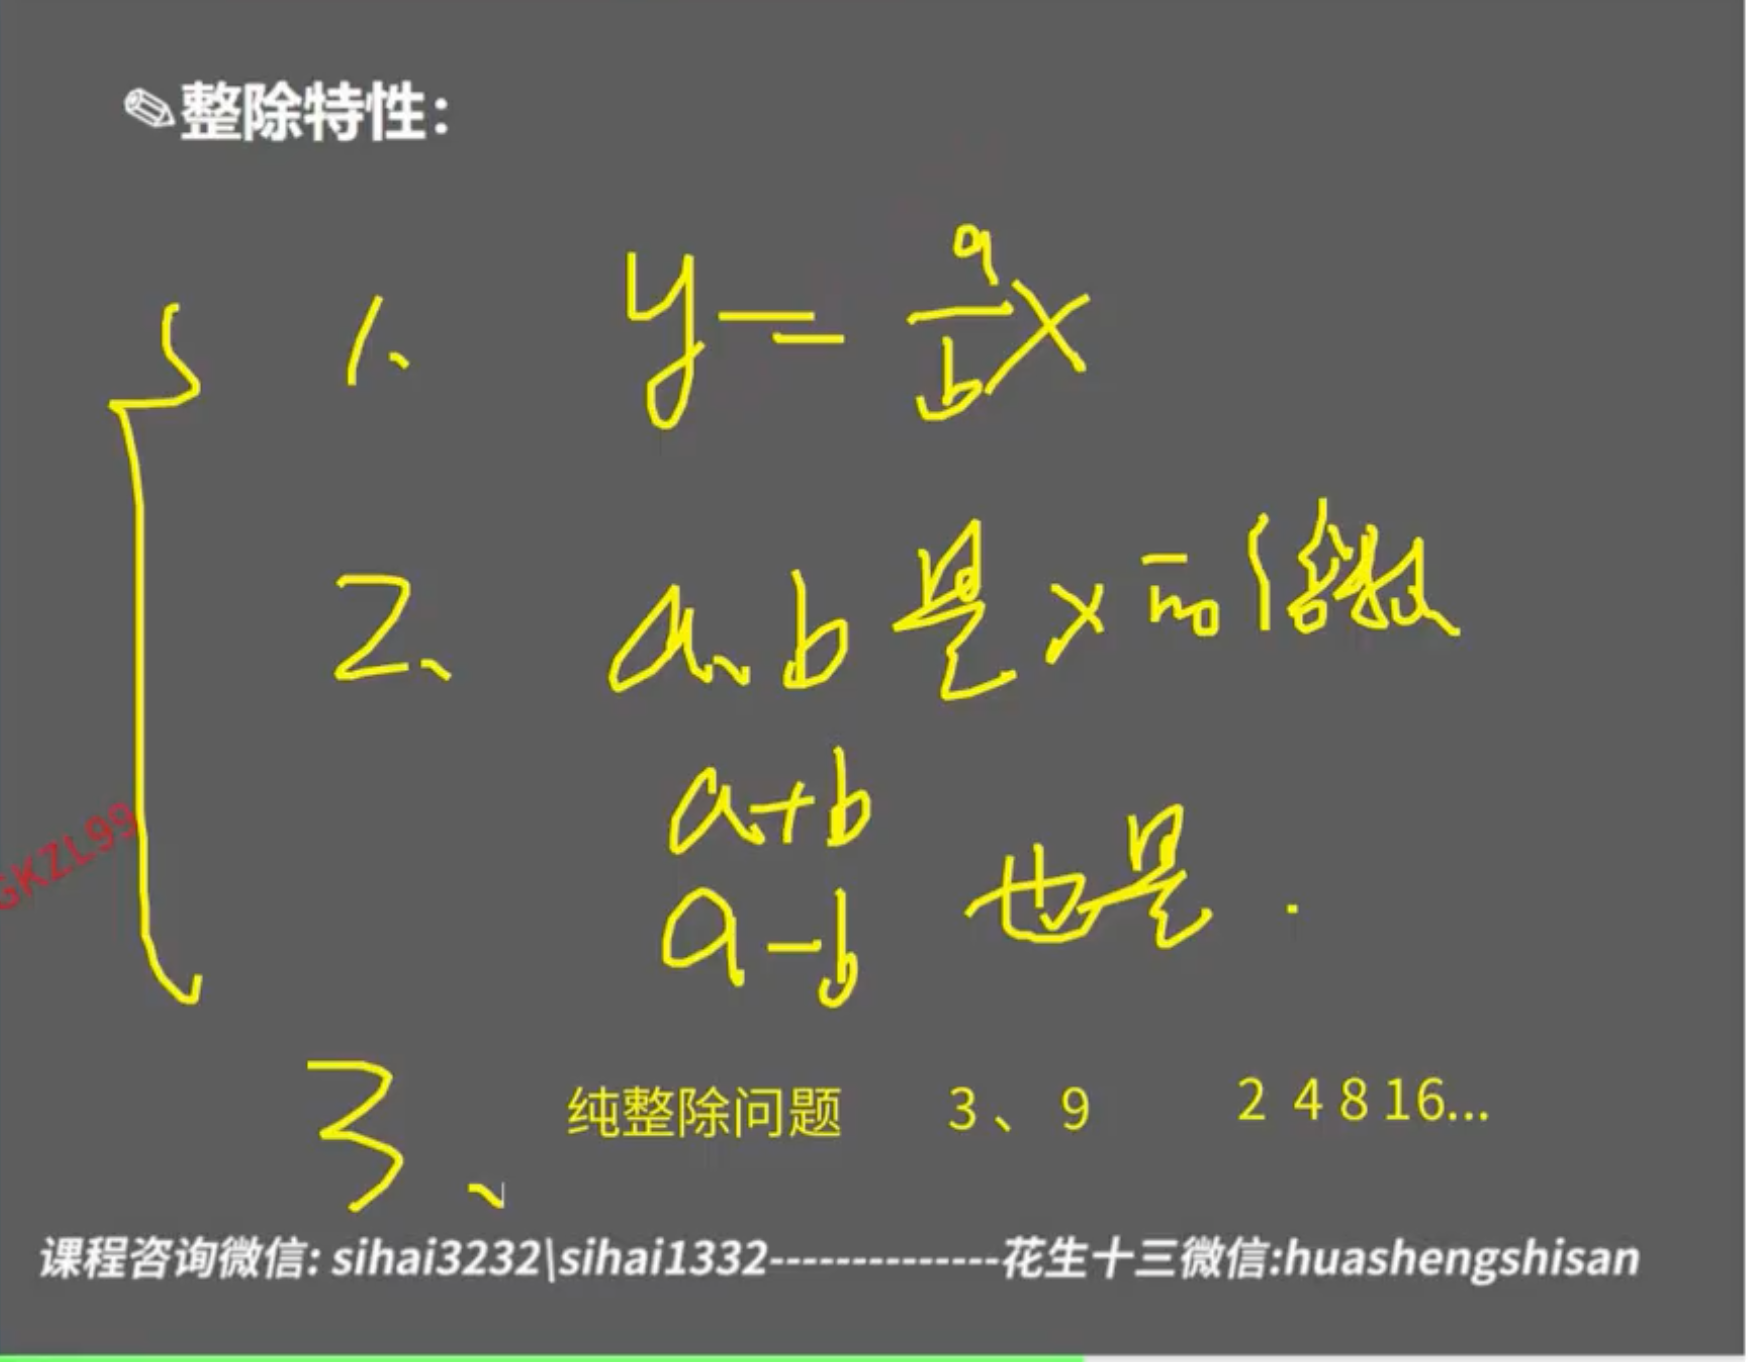 整除特性：
1、 y = a/b x
2、 a、b是x的倍数
a+b
a-b 也是.
GKZL99
3、 纯整除问题 3、9 2 4 8 16...
课程咨询微信: sihai3232\sihai1332--------------花生十三微信:huashengshisan